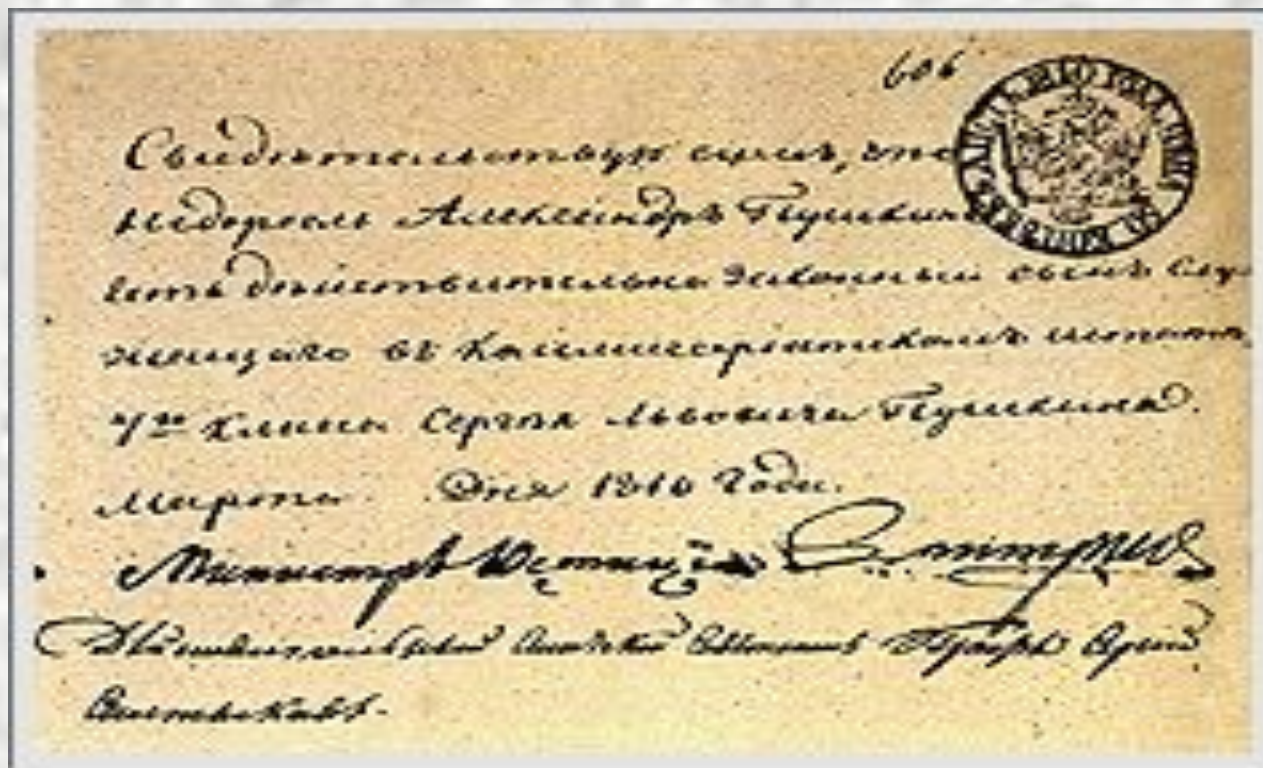 606
Свидѣтельствую симъ, что
недоросль Александръ Пушкинъ
есть дѣйствительно законный сынъ Слу-
жащаго въ Коммисаріатскомъ штатѣ,
7го класса Сергѣя Львовича Пушкина.
Марта Дня 1810 Года.
Министръ Юстиціи Дмитріевъ
Дѣйствительный Статской Совѣтникъ Графъ